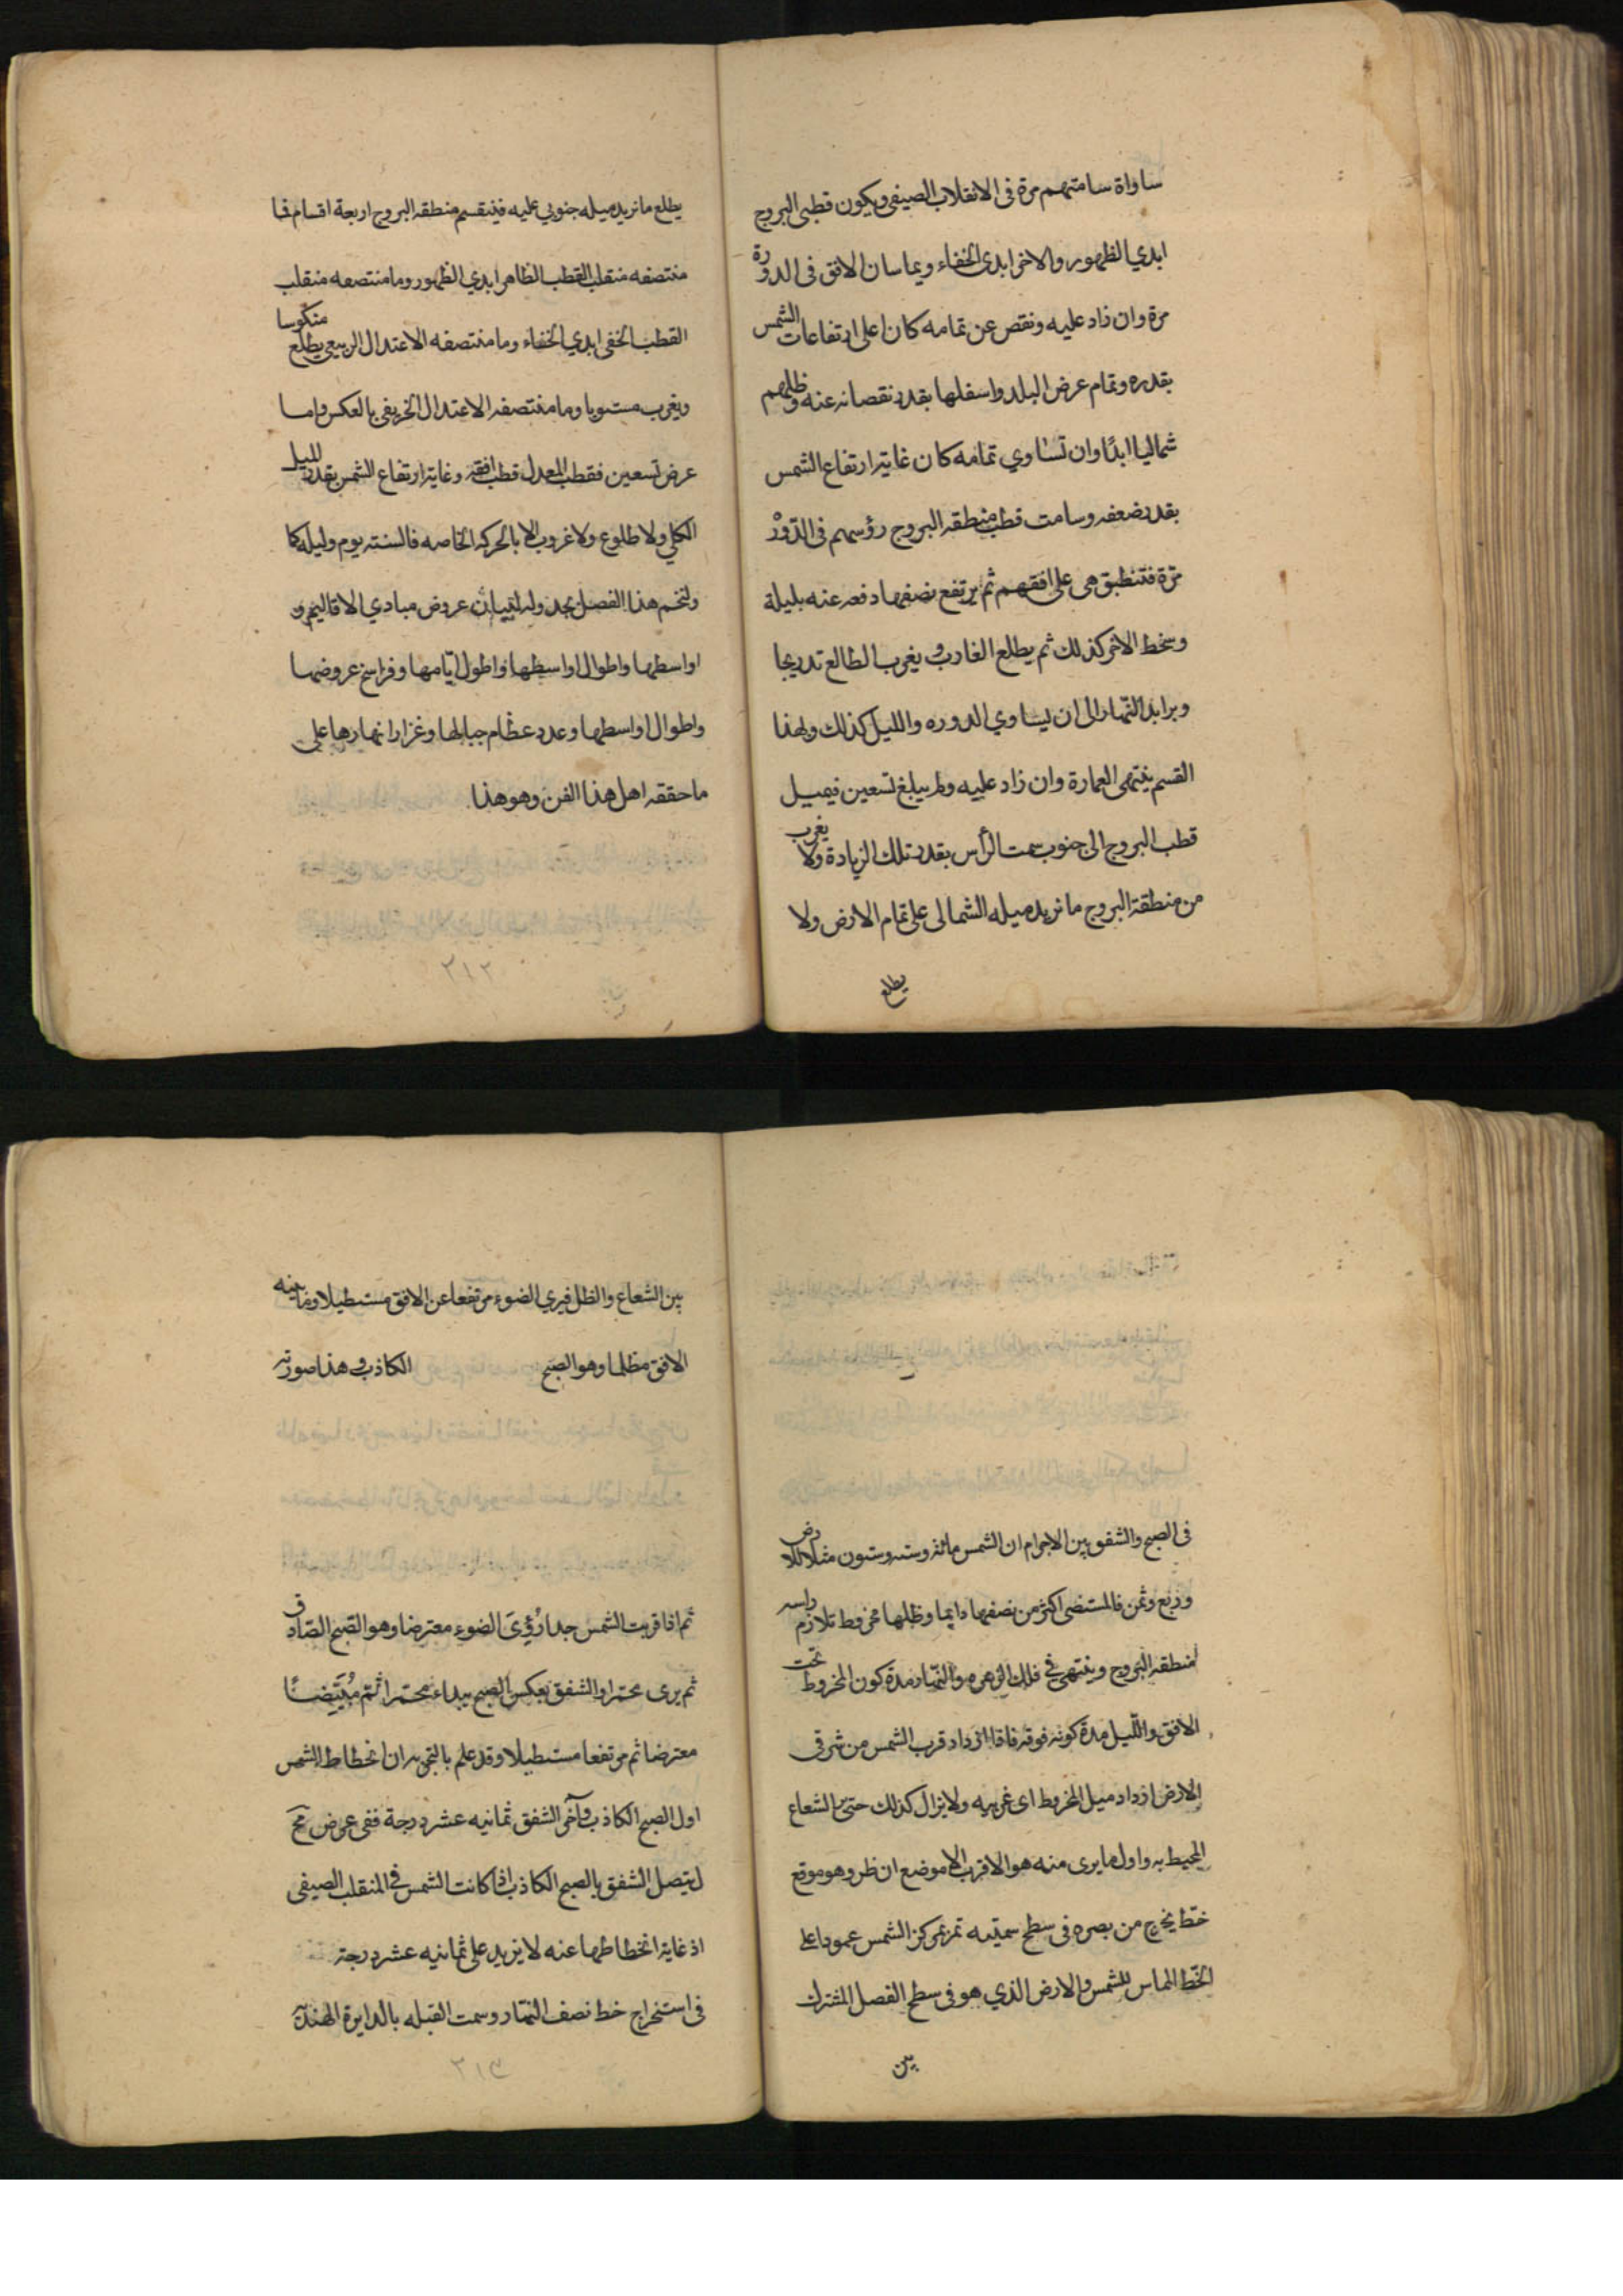 ساواة سامتهم مرة فى الانقلاب الصيفى ويكون قطبى البروج
ابدي الظهور والاخر ابدى الخفاء ويماسان الافق فى الدورة
مرة وان زاد عليه ونقص عن تمامه كان اعلى ارتفاعات الشمس
بقدره وتمام عرض البلد واسفلها بقدر نقصانه عنه وظلهم
شماليا ابدًا وان تساوي تمامه كان غاية ارتفاع الشمس
بقدر ضعفه وسامت قطب منطقه البروج رؤسهم فى الدّوْر
مرّة فتنطبق هى على افقهم ثم يرتفع نصفها دفعه عنه بليلة
وينحط الاخر كذلك ثم يطلع الغارب و يغرب الطالع تدريجا
النّهار الى ان يساوي الدوره والليل كذلك وبهذا
القسم ينتهى العمارة وان زاد عليه ولم يبلغ تسعين فيميل
قطب البروج الى جنوب سمت الرأس بقدر تلك الزيادة ولا يغرب
من منطقة البروج ما نزيد ميله الشمالى على تمام الارض ولا
يطلع
يطلع ما نزيد ميله جنوبي عليه فينقسم منطقه البروج اربعة اقسام فما
منتصفه منقلب القطب الظاهر ابدي الظهور وما منتصفه منقلب
القطب الخفى ابدي الخفاء وما منتصفه الاعتدال الربيعى يطلع منكوسا
ويغرب مستويا وما منتصفه الاعتدال الخريفى بالعكس واما
عرض تسعين فقطب المعدل قطب افقه وغاية ارتفاع الشمس بقدر الميل
الكلي ولا طلوع ولا غروب الا بالحركه الخاصه فالسنته يوم وليله كما
ولنختم هذا الفصل بجدول لبيان عروض مبادي الاقاليم و
اواسطها واطوال اواسطها واطول ايّامها وفراسخ عروضها
واطوال اواسطها وعدد عظام جبالها وغزار انهارها على
ما حققه اهل هذا الفن وهو هذا
٢١٢
فى الصبح والشفق بين الاجرام ان الشمس مائة وسته وستون مثلا للارض
وربع وثمن فالمستضى اكثر من نصفها دايما وظلها مخروط تلازم راسه
لمنطقه البروج وينتهى فى فلك الزهره والنّهار مدة كون المخروط تحت
الافق واللّيل مدة كونه فوقه فاذا ازداد قرب الشمس من شرقى
الارض ازداد ميل المخروط اى غربيه ولا يزال كذلك حتى الشعاع
المحيط به واول ما يرى منه هو الاقرب الا موضع ان ظر وهو موقع
خطّ يخرج من بصره فى سطح سمتيه تمر بمركز الشمس عمودا على
الخطّ المماس للشمس والارض الذي هو فى سطح الفصل المشترك
بين
بين الشعاع والظل فيرى الضوء مرتفعا عن الافق مستطيلا وما بينه
الافق مظلما وهو الصبح الكاذب و هذا صورته
ثم اذا قربت الشمس جدا رُؤِىَ الضوء معترضا وهو الصّبح الصّادق
ثم يرى محمرا والشفق بعكس الصبح يبداء محمرا ثم مُبيَّضًا
معترضا ثم مرتفعا مستطيلا وقد علم بالتجربه ان انحطاط الشمس
اول الصبح الكاذب وآخر الشفق ثمانيه عشر درجة ففى عرض مح
ليتصل الشفق بالصبح الكاذب اذا كانت الشمس فى المنقلب الصيفى
اذ غاية انحطاطها عنه لا يزيد على ثمانيه عشر درجة
فى استخراج خط نصف النّهار وسمت القبله بالدايرة الهنديّة